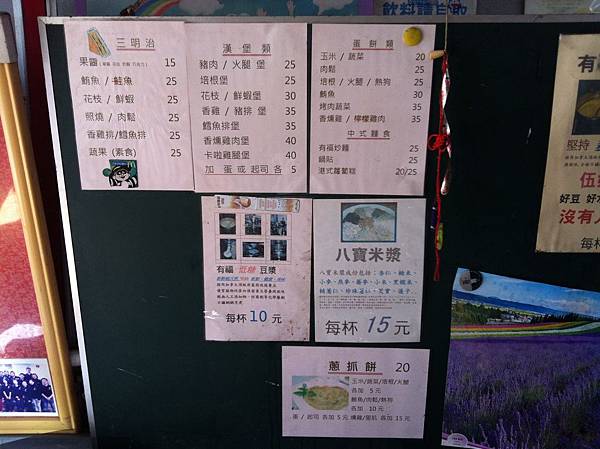 飲料請自取
三明治
果醬 15
鮪魚 / 鮭魚 25
花枝 / 鮮蝦 25
照燒 / 肉鬆 25
香雞排/鱈魚排 25
蔬果 (素食) 25
漢堡類
豬肉 / 火腿 堡 25
培根堡 25
花枝 / 鮮蝦堡 30
香雞 / 豬排 堡 35
鱈魚排堡 35
香燻雞肉堡 40
卡啦雞腿堡 40
加 蛋或起司各 5
蛋餅類
玉米 / 蔬菜 20
肉鬆 25
培根 / 火腿 / 熱狗 25
鮪魚 30
烤肉蔬菜 35
香燻雞 / 檸檬雞肉 35
中式麵食
有福炒麵 25
鍋貼 25
港式蘿蔔糕 20/25
有福 低糖 豆漿
每杯 10 元
八寶米漿
八寶米漿成份包括：杏仁、糙米、
小麥、燕麥、蕎麥、小米、黑糯米、
每杯 15 元
蔥抓餅 20
玉米/蔬菜/培根/火腿
各加 5 元
鮪魚/肉鬆/熱狗
各加 10 元
蛋 / 起司 各加 5 元 燻雞/里肌 各加 15 元
有
堅持
伍
好豆 好水
沒有人
每杯